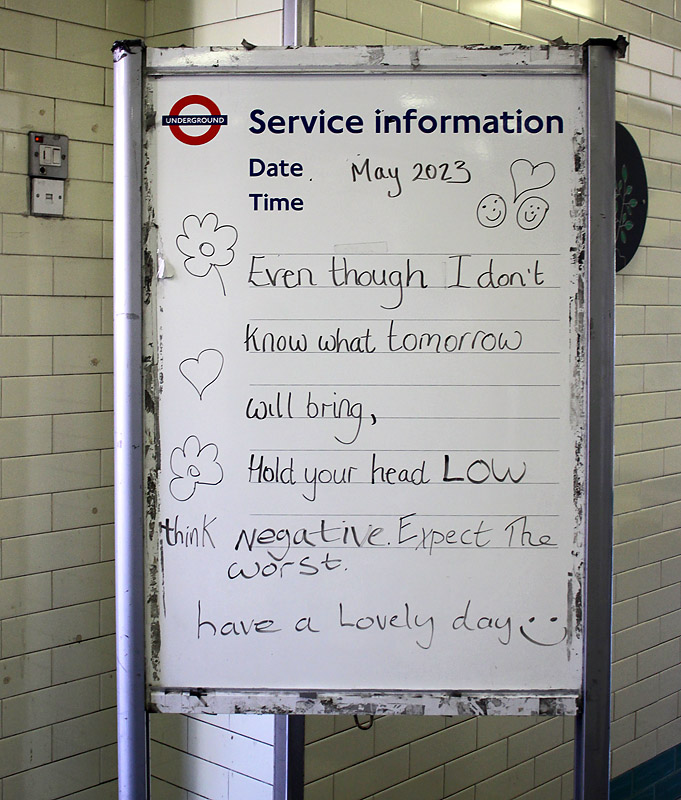 UNDERGROUND
Service information
Date. May 2023
Time
Even though I don't
Know what tomorrow
will bring,
Hold your head LOW
think negative. Expect The
worst.
have a Lovely day